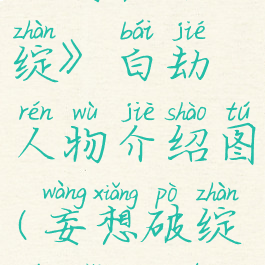 zhàn bái jié
绽》 白劫
rén wù jiè shào tú
人物介绍图
wàng xiǎng pò zhàn
(妄想破绽